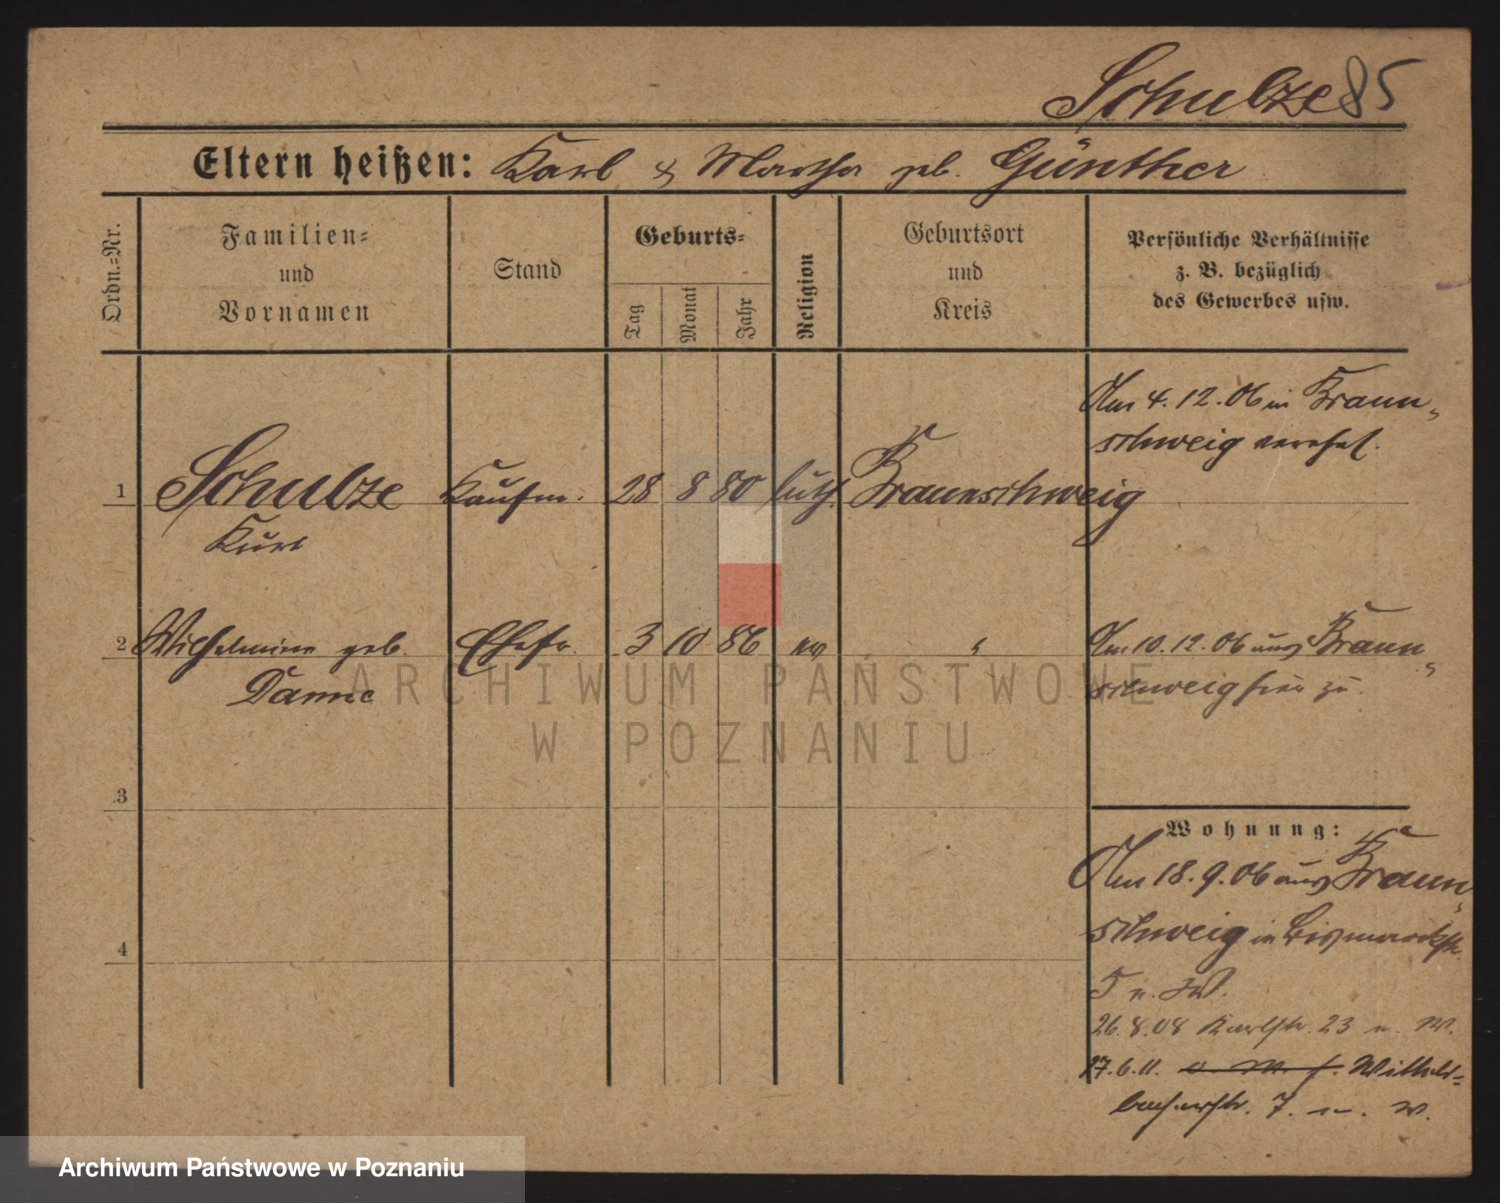 Schulze 85
Eltern heißen: Karl & Martha geb. Günther
Ordn.-Nr.
Familien-
und
Vornamen
Stand
Geburts-
Tag
Monat
Jahr
Religion
Geburtsort
und
Kreis
Persönliche Verhältnisse
z. B. bezüglich
des Gewerbes usw.
Am 4. 12. 06 in Braun-
schweig verehel.
1 Schulze Kaufm. 28 8 80 luth. Braunschweig
Kurt
2 Wilhelmine geb. Ehefr. 3 10 86 ev " Am 10. 12. 06 aus Braun-
Danne schweig hier zu
3
4
Wohnung:
Am 18. 9. 06 aus Braun-
schweig in Bismarckstr.
5 n. W.
26.8.08 Karlstr. 23 n. W.
27.6.11.
7. n. W.
ARCHIWUM PAŃSTWOWE
W POZNANIU
Archiwum Państwowe w Poznaniu